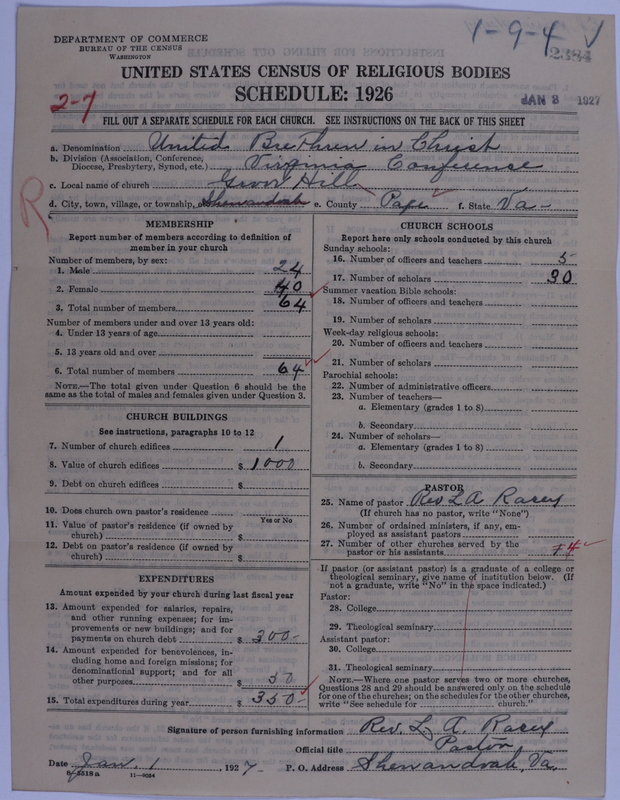 DEPARTMENT OF COMMERCE
BUREAU OF THE CENSUS
WASHINGTON
1-9-4 √
2384
UNITED STATES CENSUS OF RELIGIOUS BODIES
SCHEDULE: 1926
JAN 3 1927
2-7
FILL OUT A SEPARATE SCHEDULE FOR EACH CHURCH. SEE INSTRUCTIONS ON THE BACK OF THIS SHEET
a. Denomination United Brethren in Christ
b. Division (Association, Conference, Diocese, Presbytery, Synod, etc.) Virginia Conference
c. Local name of church Hill
d. City, town, village, or township, Shenandoah e. County Page f. State Va-
R
MEMBERSHIP
Report number of members according to definition of
member in your church
Number of members, by sex:
1. Male 24
2. Female 40
3. Total number of members 64
Number of members under and over 13 years old:
4. Under 13 years of age
5. 13 years old and over
6. Total number of members 64
NOTE.—The total given under Question 6 should be
same as the total of males and females given under Question 3.
CHURCH BUILDINGS
See instructions, paragraphs 10 to 12
7. Number of church edifices 1
8. Value of church edifices $ 1000
9. Debt on church edifices $
10. Does church own pastor's residence
Yes or No
11. Value of pastor's residence (if owned by
church) $
12. Debt on pastor's residence (if owned by
church) $
EXPENDITURES
Amount expended by your church during last fiscal year
13. Amount expended for salaries, repairs,
and other running expenses; for im-
provements or new buildings; and for
payments on church debt $ 300-
14. Amount expended for benevolences, in-
cluding home and foreign missions; for
denominational support; and for all
other purposes $ 50
15. Total expenditures during year $ 350-
CHURCH SCHOOLS
Report here only schools conducted by this church
Sunday schools:
16. Number of officers and teachers 5
17. Number of scholars 30
Summer vacation Bible schools:
18. Number of officers and teachers
19. Number of scholars
Week-day religious schools:
20. Number of officers and teachers
21. Number of scholars
Parochial schools:
22. Number of administrative officers
23. Number of teachers—
a. Elementary (grades 1 to 8)
b. Secondary
24. Number of scholars—
a. Elementary (grades 1 to 8)
b. Secondary
PASTOR
25. Name of pastor Rev L A Racey
(If church has no pastor, write "None")
26. Number of ordained ministers, if any, em-
ployed as assistant pastors
27. Number of other churches served by the
pastor or his assistants 4
If pastor (or assistant pastor) is a graduate of a college or
theological seminary, give name of institution below. (If
not a graduate, write "No" in the space indicated.)
Pastor:
28. College
29. Theological seminary
Assistant pastor:
30. College
31. Theological seminary
NOTE.—Where one pastor serves two or more churches,
Questions 28 and 29 should be answered only on the schedule
for one of the churches; on the schedules for the other churches,
write "See schedule for church."
Signature of person furnishing information Rev. L. A. Racey
Official title Pastor
Date Jan. 1, 1927. P. O. Address Shenandoah, Va.
8-5518a 11-9084